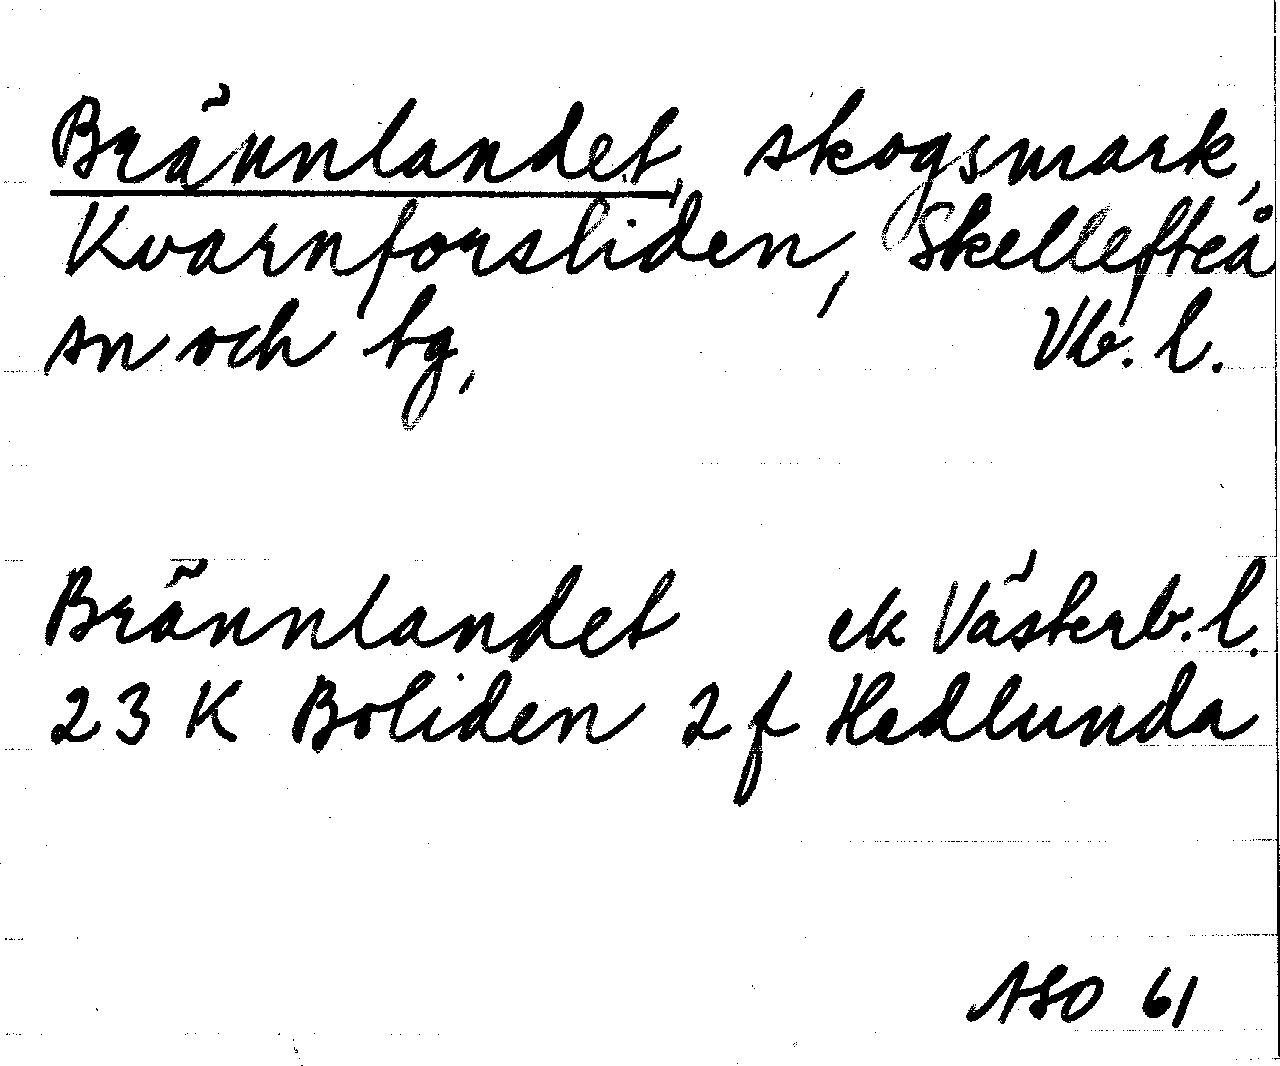 Brännlandet, skogsmark,
Kvarnforsliden, Skellefteå
sn och tg, Vb. l.
Brännlandet ek Västerb. l.
23 K Boliden 2 f Hedlunda
ASO 61